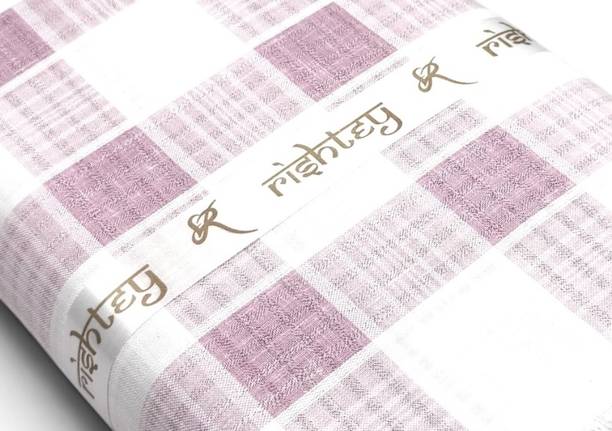 rish
rishtey
rishtey